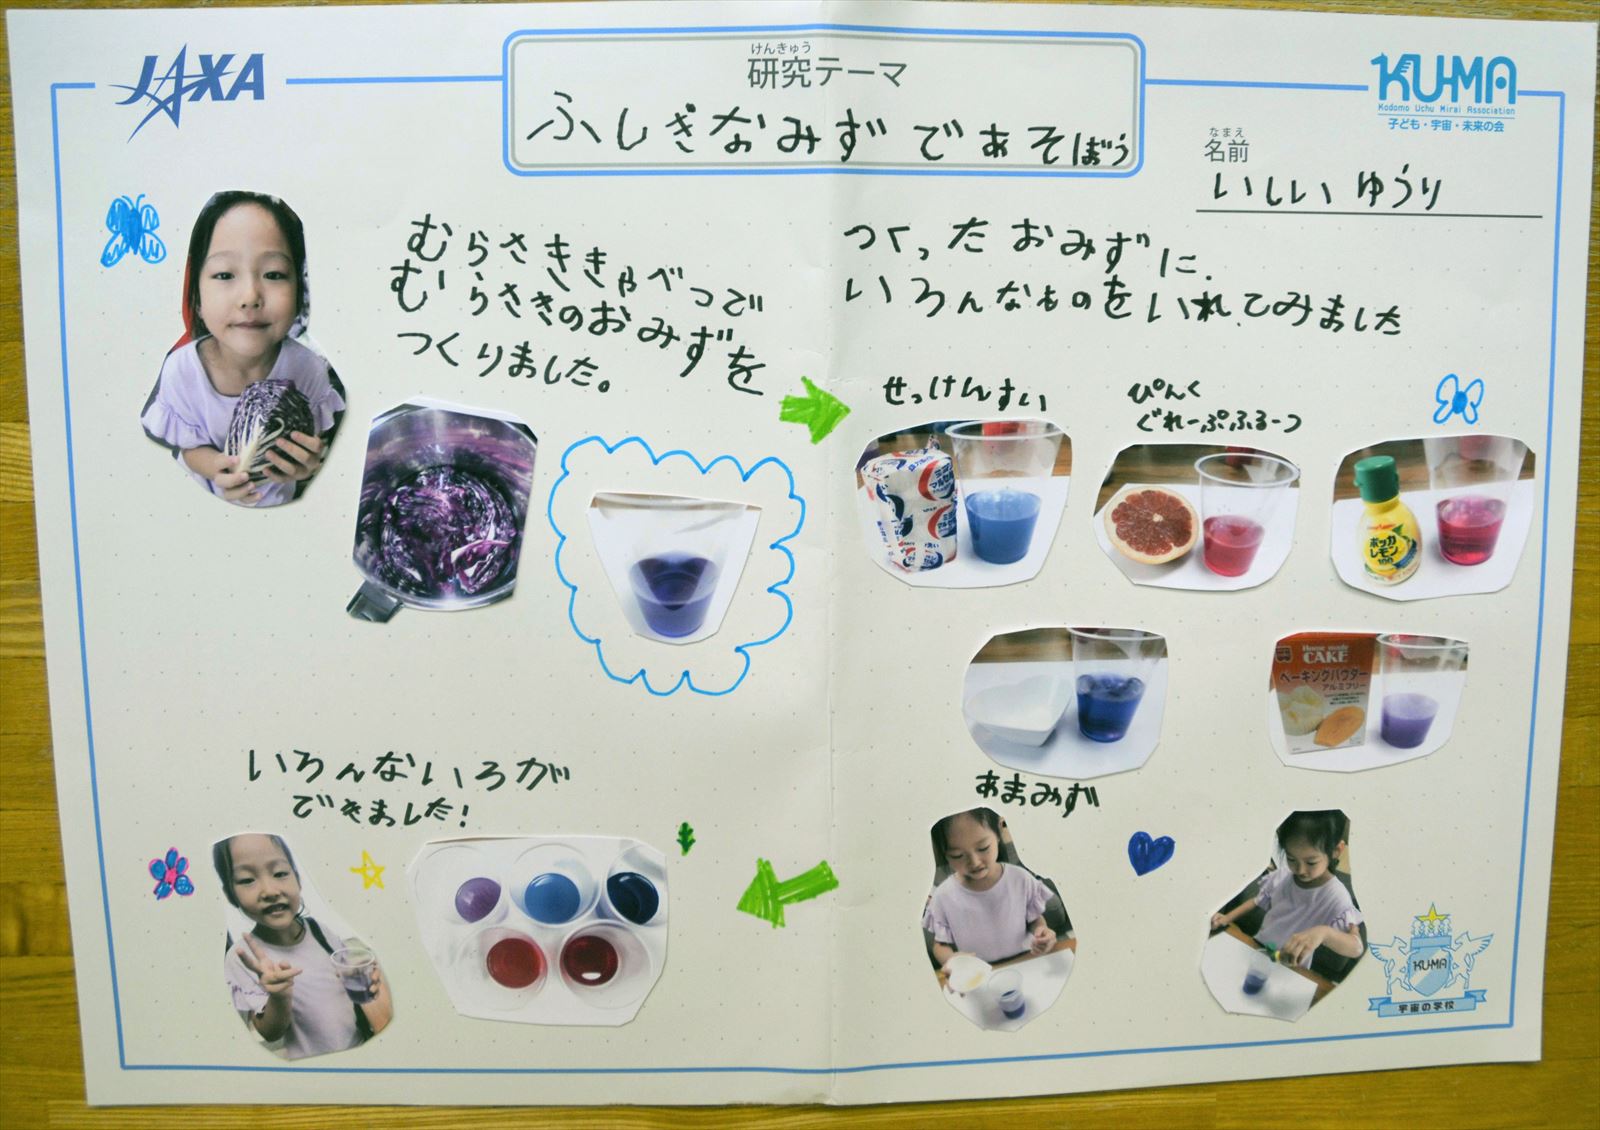 JAXA
けんきゅう
研究テーマ
ふしぎなみずであそぼう
KU-MA
Kodomo Uchu Mirai Association
子ども・宇宙・未来の会
なまえ
名前
いしい ゆうり
むらさききゃべつで
むらさきのおみずを
つくりました。
つくったおみずに
いろんなものをいれてみました
せっけんすい
ぴんく
ぐれーぷふるーつ
ポッカ
レモン
100
Home made
CAKE
ベーキングパウダー
アルミフリー
あまみず
いろんないろが
できました!
KU-MA
宇宙の学校